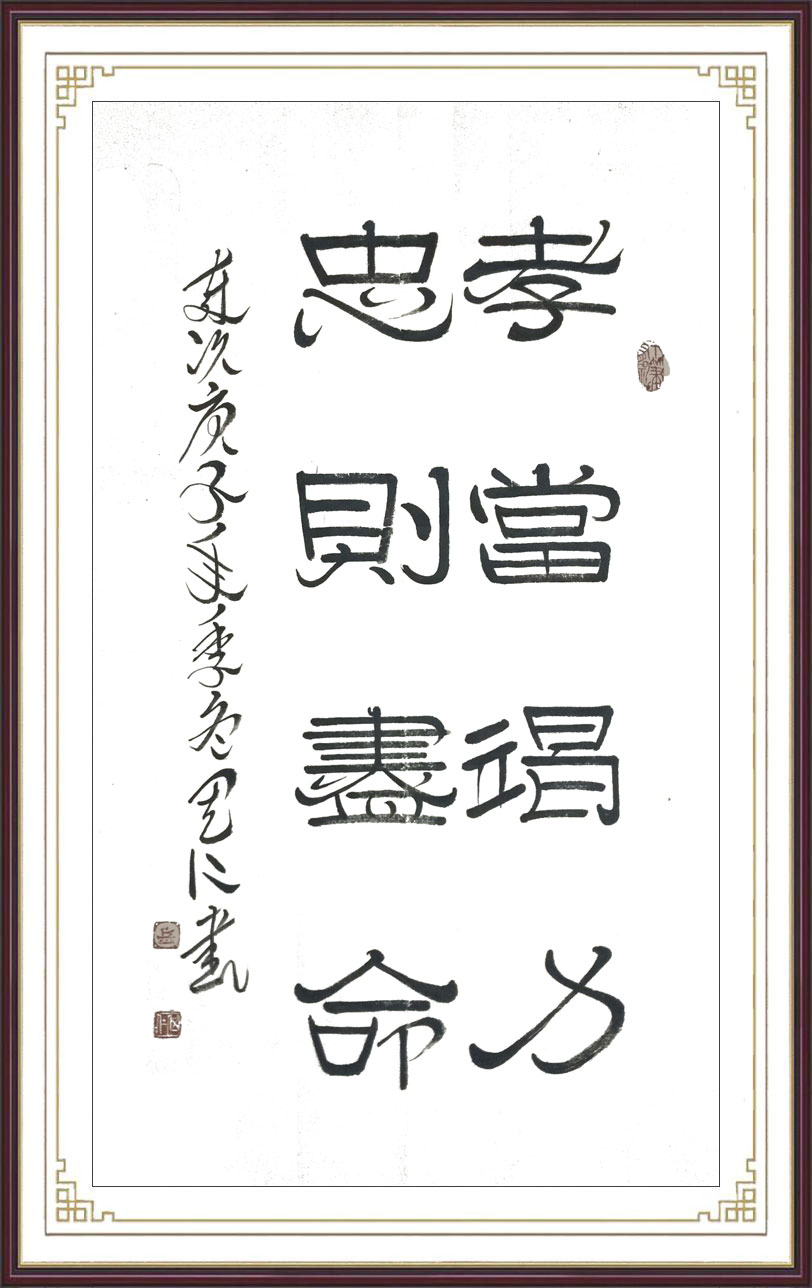 孝當竭力
忠則盡命
歲次庚子年季冬思仁書